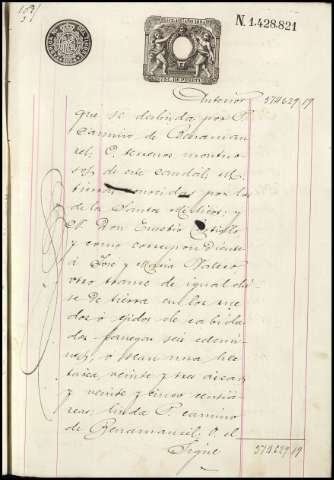 N. 1.428.821
Anterior 574629 19
que se deslinda por P.
camino de Benamau
rel; O. terrenos montuo
sos de este caudal; M.
tierras conocidas por las
de la Santa y
N. Don Eusebio
y como correspondiente
á José y María Valero
otro trance de igual cla
se de tierra en los rue
dos ó egidos de cabida
dos fanegas seis celemi
nes, ó sean una hec
tárea, veinte y tres áreas
y veinte y cinco centiá
reas; linda P. camino
de Benamaurel; O. el
Sigue 574629 19